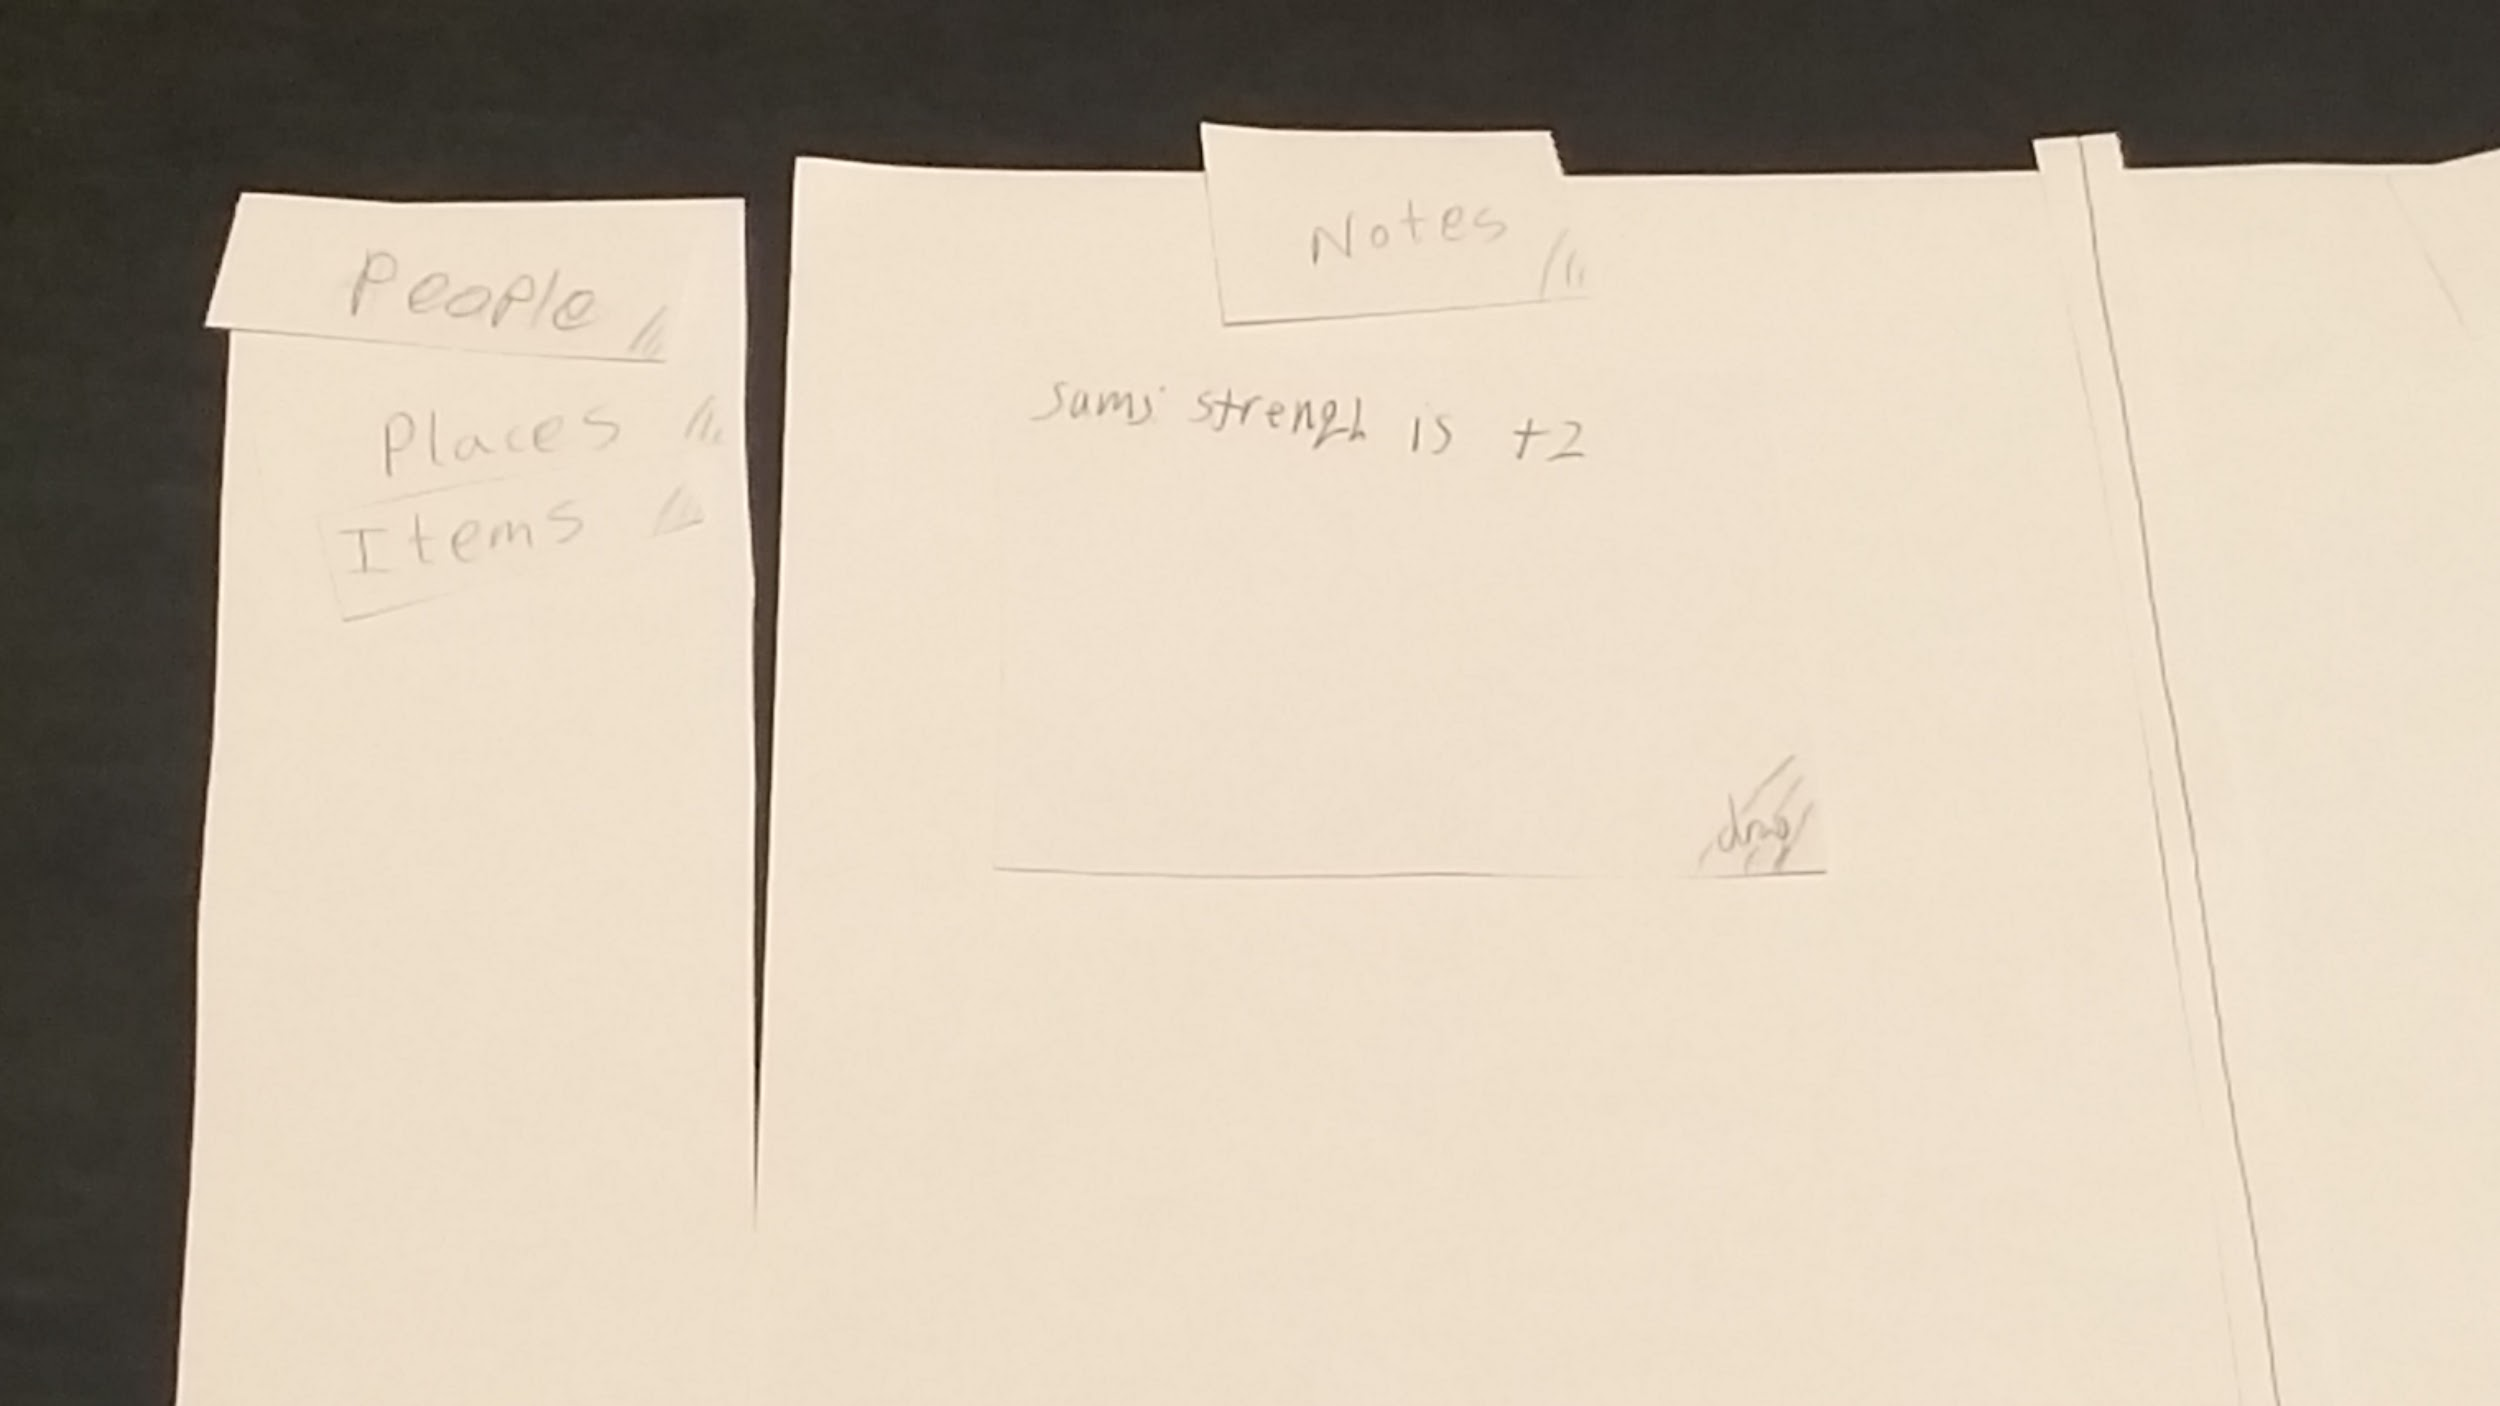 People
Places
Items
Notes
Sams strengh is +2
drag